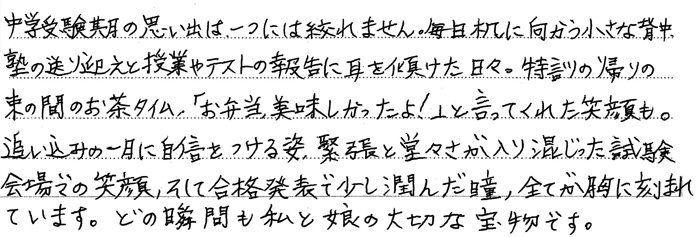 中学受験期の思い出は、一つには絞れません。毎日机に向かう小さな背中、
塾の送り迎えと授業やテストの報告に耳を傾けた日々。特訓の帰りの
束の間のお茶タイム、「お弁当、美味しかったよ！」と言ってくれた笑顔も。
追い込みの一月に自信をつける姿、緊張と堂々さが入り混じった試験
会場での笑顔、そして合格発表で少し潤んだ瞳、全てが胸に刻まれ
ています。どの瞬間も私と娘の大切な宝物です。